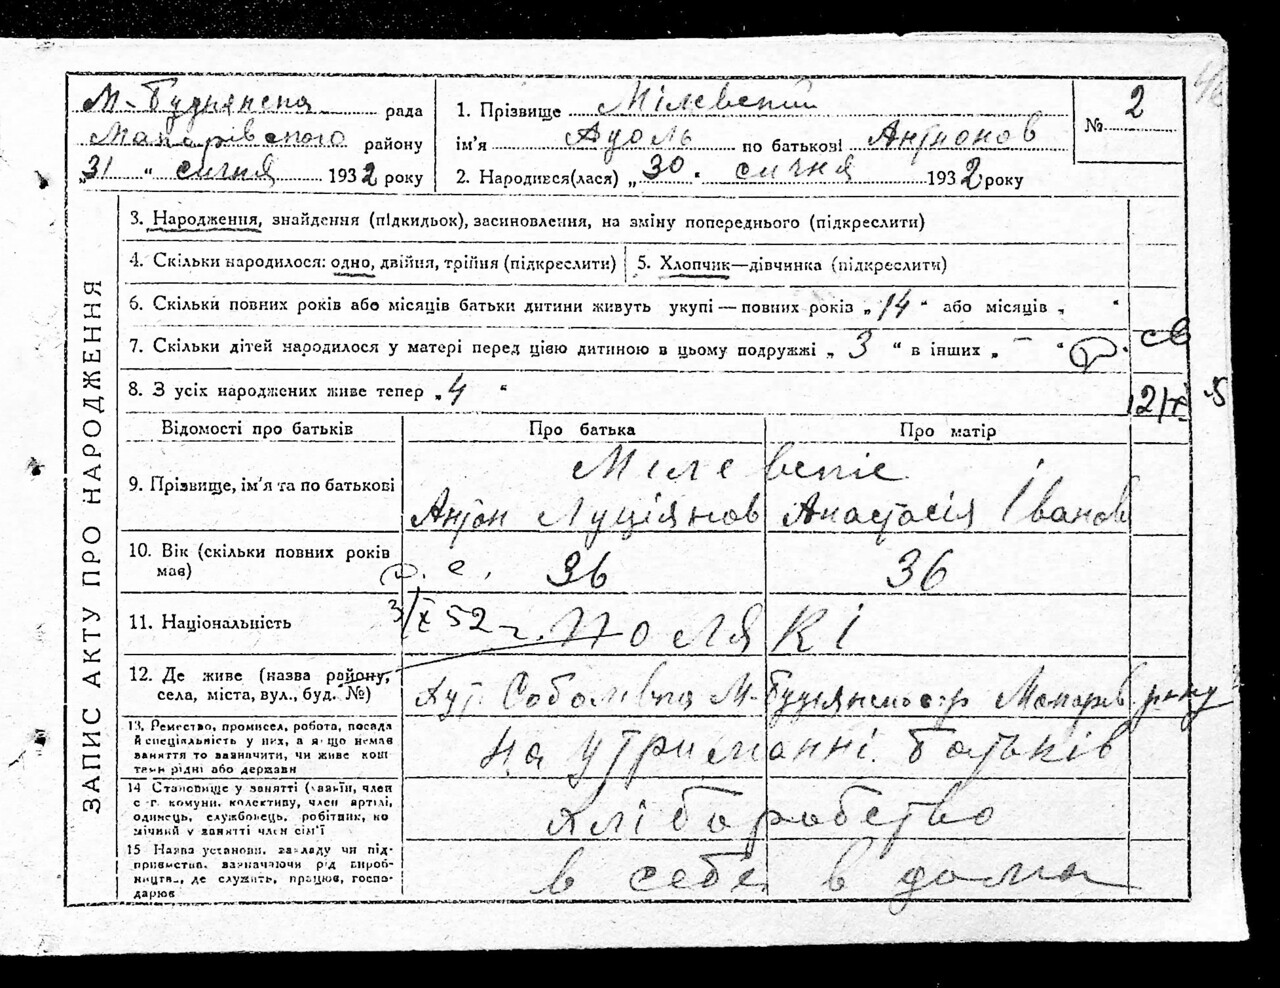 М-Буднянська рада
Макарівського району
„31 “ січня 1932 року
1. Прізвище Мілевський
ім'я Адоль по батькові Антонов
2. Народився(лася) „30 “ січня 1932 року
№ 2
ЗАПИС АКТУ ПРО НАРОДЖЕННЯ
3. Народження, знайдення (підкидьок), засиновлення, на зміну попереднього (підкреслити)
4. Скільки народилося: одно, двійня, трійня (підкреслити)
5. Хлопчик—дівчинка (підкреслити)
6. Скільки повних років або місяців батьки дитини живуть укупі — повних років „ 14 “ або місяців „ “
7. Скільки дітей народилося у матері перед цією дитиною в цьому подружжі „ 3 “ в інших „ – “
св
8. З усіх народжених живе тепер „ 4 “
Відомості про батьків Про батька Про матір
Мілевскіє
9. Прізвище, ім'я та по батькові Антон Луціянов Анастасія Іванов
10. Вік (скільки повних років мав) 36 36
3/X 52 г.
11. Національність Поляки
12. Де живе (назва району,
села, міста, вул., буд. №) Хут. Соболівка М-Буднянської с-р Макарів р-ну
13. Ремество, промисел, робота, посада
й спеціальність у них, а якщо немає
заняття то зазначити, чи живе кош
том рідні або держави
на утриманні батьків
14 Становище у занятті (хазяїн, член
с-г. комуни, колективу, член артілі,
одинець, службовець, робітник, по
мічний у занятті член сім'ї
хліборобство
15 Назва установи, закладу чи під-
приємства, зазначаючи рід вироб-
ництва, де служить, працює, госпо-
дарює
в себе в дома